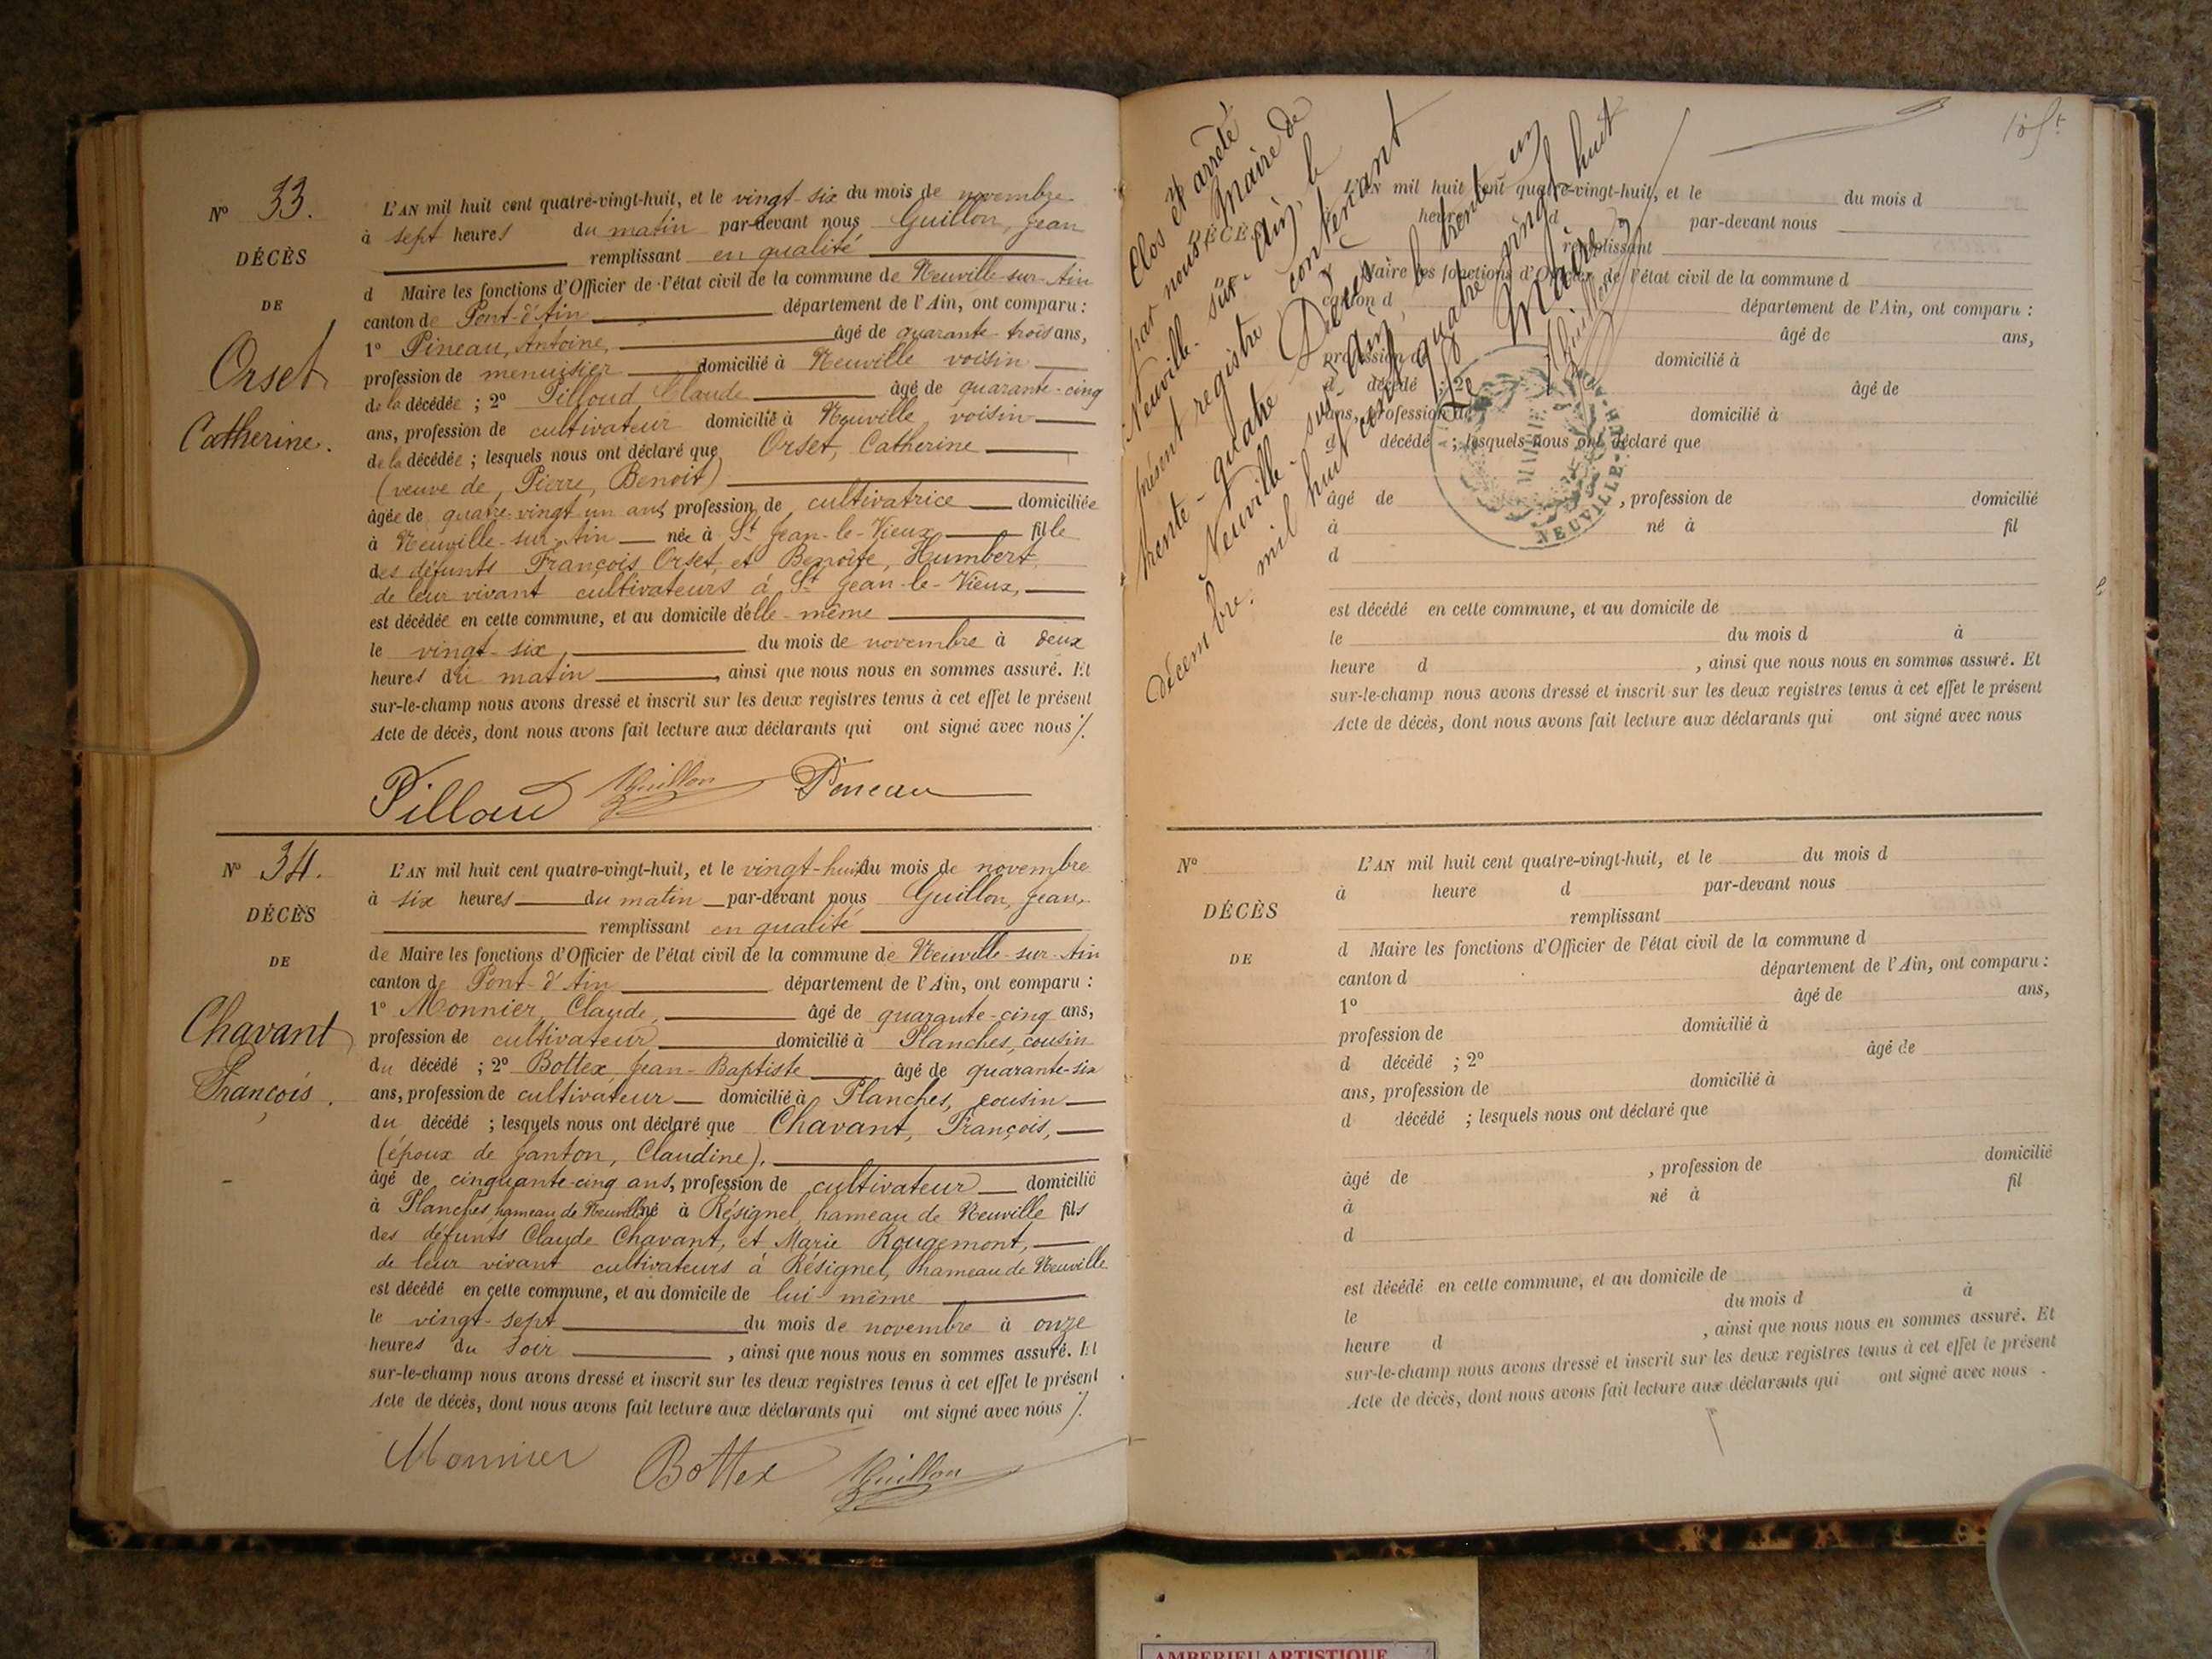 Nº 33.
DÉCÈS
DE
Orset
Catherine.
L'AN mil huit cent quatre-vingt-huit, et le vingt-six du mois de novembre
à sept heures du matin par-devant nous Guillon, Jean
remplissant en qualité
d Maire les fonctions d'Officier de l'état civil de la commune de Neuville-sur-Ain
canton de Pont-d'Ain département de l'Ain, ont comparu :
1º Pineau, Antoine, âgé de quarante-trois ans,
profession de menuisier domicilié à Neuville voisin
de la décédée ; 2º Pilloud Claude âgé de quarante-cinq
ans, profession de cultivateur domicilié à Neuville, voisin
de la décédée ; lesquels nous ont déclaré que Orset, Catherine
(veuve de, Pierre, Benoit)
âgée de quatre-vingt un ans profession de cultivatrice domiciliée
à Neuville-sur-Ain née à St Jean-le-Vieux fille
des défunts François Orset, et Benoîte, Humbert,
de leur vivant cultivateurs à St Jean-le-Vieux,
est décédée en cette commune, et au domicile d'elle-même
le vingt-six, du mois de novembre à deux
heures du matin, ainsi que nous nous en sommes assuré. Et
sur-le-champ nous avons dressé et inscrit sur les deux registres tenus à cet effet le présent
Acte de décès, dont nous avons fait lecture aux déclarants qui ont signé avec nous ./.
Pilloud Guillon Pineau
Nº 34.
DÉCÈS
DE
Chavant
François.
L'AN mil huit cent quatre-vingt-huit, et le vingt-huit du mois de novembre
à six heures du matin par-devant nous Guillon, Jean,
remplissant en qualité
de Maire les fonctions d'Officier de l'état civil de la commune de Neuville-sur-Ain
canton de Pont-d'Ain département de l'Ain, ont comparu :
1º Monnier, Claude, âgé de quarante-cinq ans,
profession de cultivateur domicilié à Planches, cousin
du décédé ; 2º Bottex, Jean-Baptiste âgé de quarante-six
ans, profession de cultivateur domicilié à Planches, cousin
du décédé ; lesquels nous ont déclaré que Chavant, François,
(époux de Janton, Claudine).
âgé de cinquante-cinq ans, profession de cultivateur domicilié
à Planches, hameau de Neuville né à Résignel, hameau de Neuville fils
des défunts Claude Chavant, et Marie Rougemont,
de leur vivant cultivateurs à Résignel, hameau de Neuville
est décédé en cette commune, et au domicile de lui-même
le vingt-sept du mois de novembre à onze
heures du soir, ainsi que nous nous en sommes assuré. Et
sur-le-champ nous avons dressé et inscrit sur les deux registres tenus à cet effet le présent
Acte de décès, dont nous avons fait lecture aux déclarants qui ont signé avec nous ./.
Monnier Bottex Guillon
Clos et arrêté
par nous, Maire de
Neuville-sur-Ain, le
présent registre contenant
trente-quatre Décès.
Neuville-sur-Ain, le trente un
décembre mil huit cent quatre vingt huit
Le Maire
Guillon
MAIRIE
NEUVILLE
DÉCÈS
L'AN mil huit cent quatre-vingt-huit, et le du mois d
heure d par-devant nous
remplissant
Maire les fonctions d'Officier de l'état civil de la commune d
canton d département de l'Ain, ont comparu :
âgé de ans,
profession de domicilié à
d décédé ; 2º âgé de
ans, profession de domicilié à
d décédé ; lesquels nous ont déclaré que
âgé de , profession de domicilié
à né à fil
d
est décédé en cette commune, et au domicile de
le du mois d à
heure d , ainsi que nous nous en sommes assuré. Et
sur-le-champ nous avons dressé et inscrit sur les deux registres tenus à cet effet le présent
Acte de décès, dont nous avons fait lecture aux déclarants qui ont signé avec nous
Nº
DÉCÈS
DE
L'AN mil huit cent quatre-vingt-huit, et le du mois d
à heure d par-devant nous
remplissant
d Maire les fonctions d'Officier de l'état civil de la commune d
canton d département de l'Ain, ont comparu :
1º âgé de ans,
profession de domicilié à
d décédé ; 2º âgé de
ans, profession de domicilié à
d décédé ; lesquels nous ont déclaré que
âgé de , profession de domicilié
à né à fil
d
est décédé en cette commune, et au domicile de
le du mois d à
heure d , ainsi que nous nous en sommes assuré. Et
sur-le-champ nous avons dressé et inscrit sur les deux registres tenus à cet effet le présent
Acte de décès, dont nous avons fait lecture aux déclarants qui ont signé avec nous .
AMBERIEU ARTISTIQUE